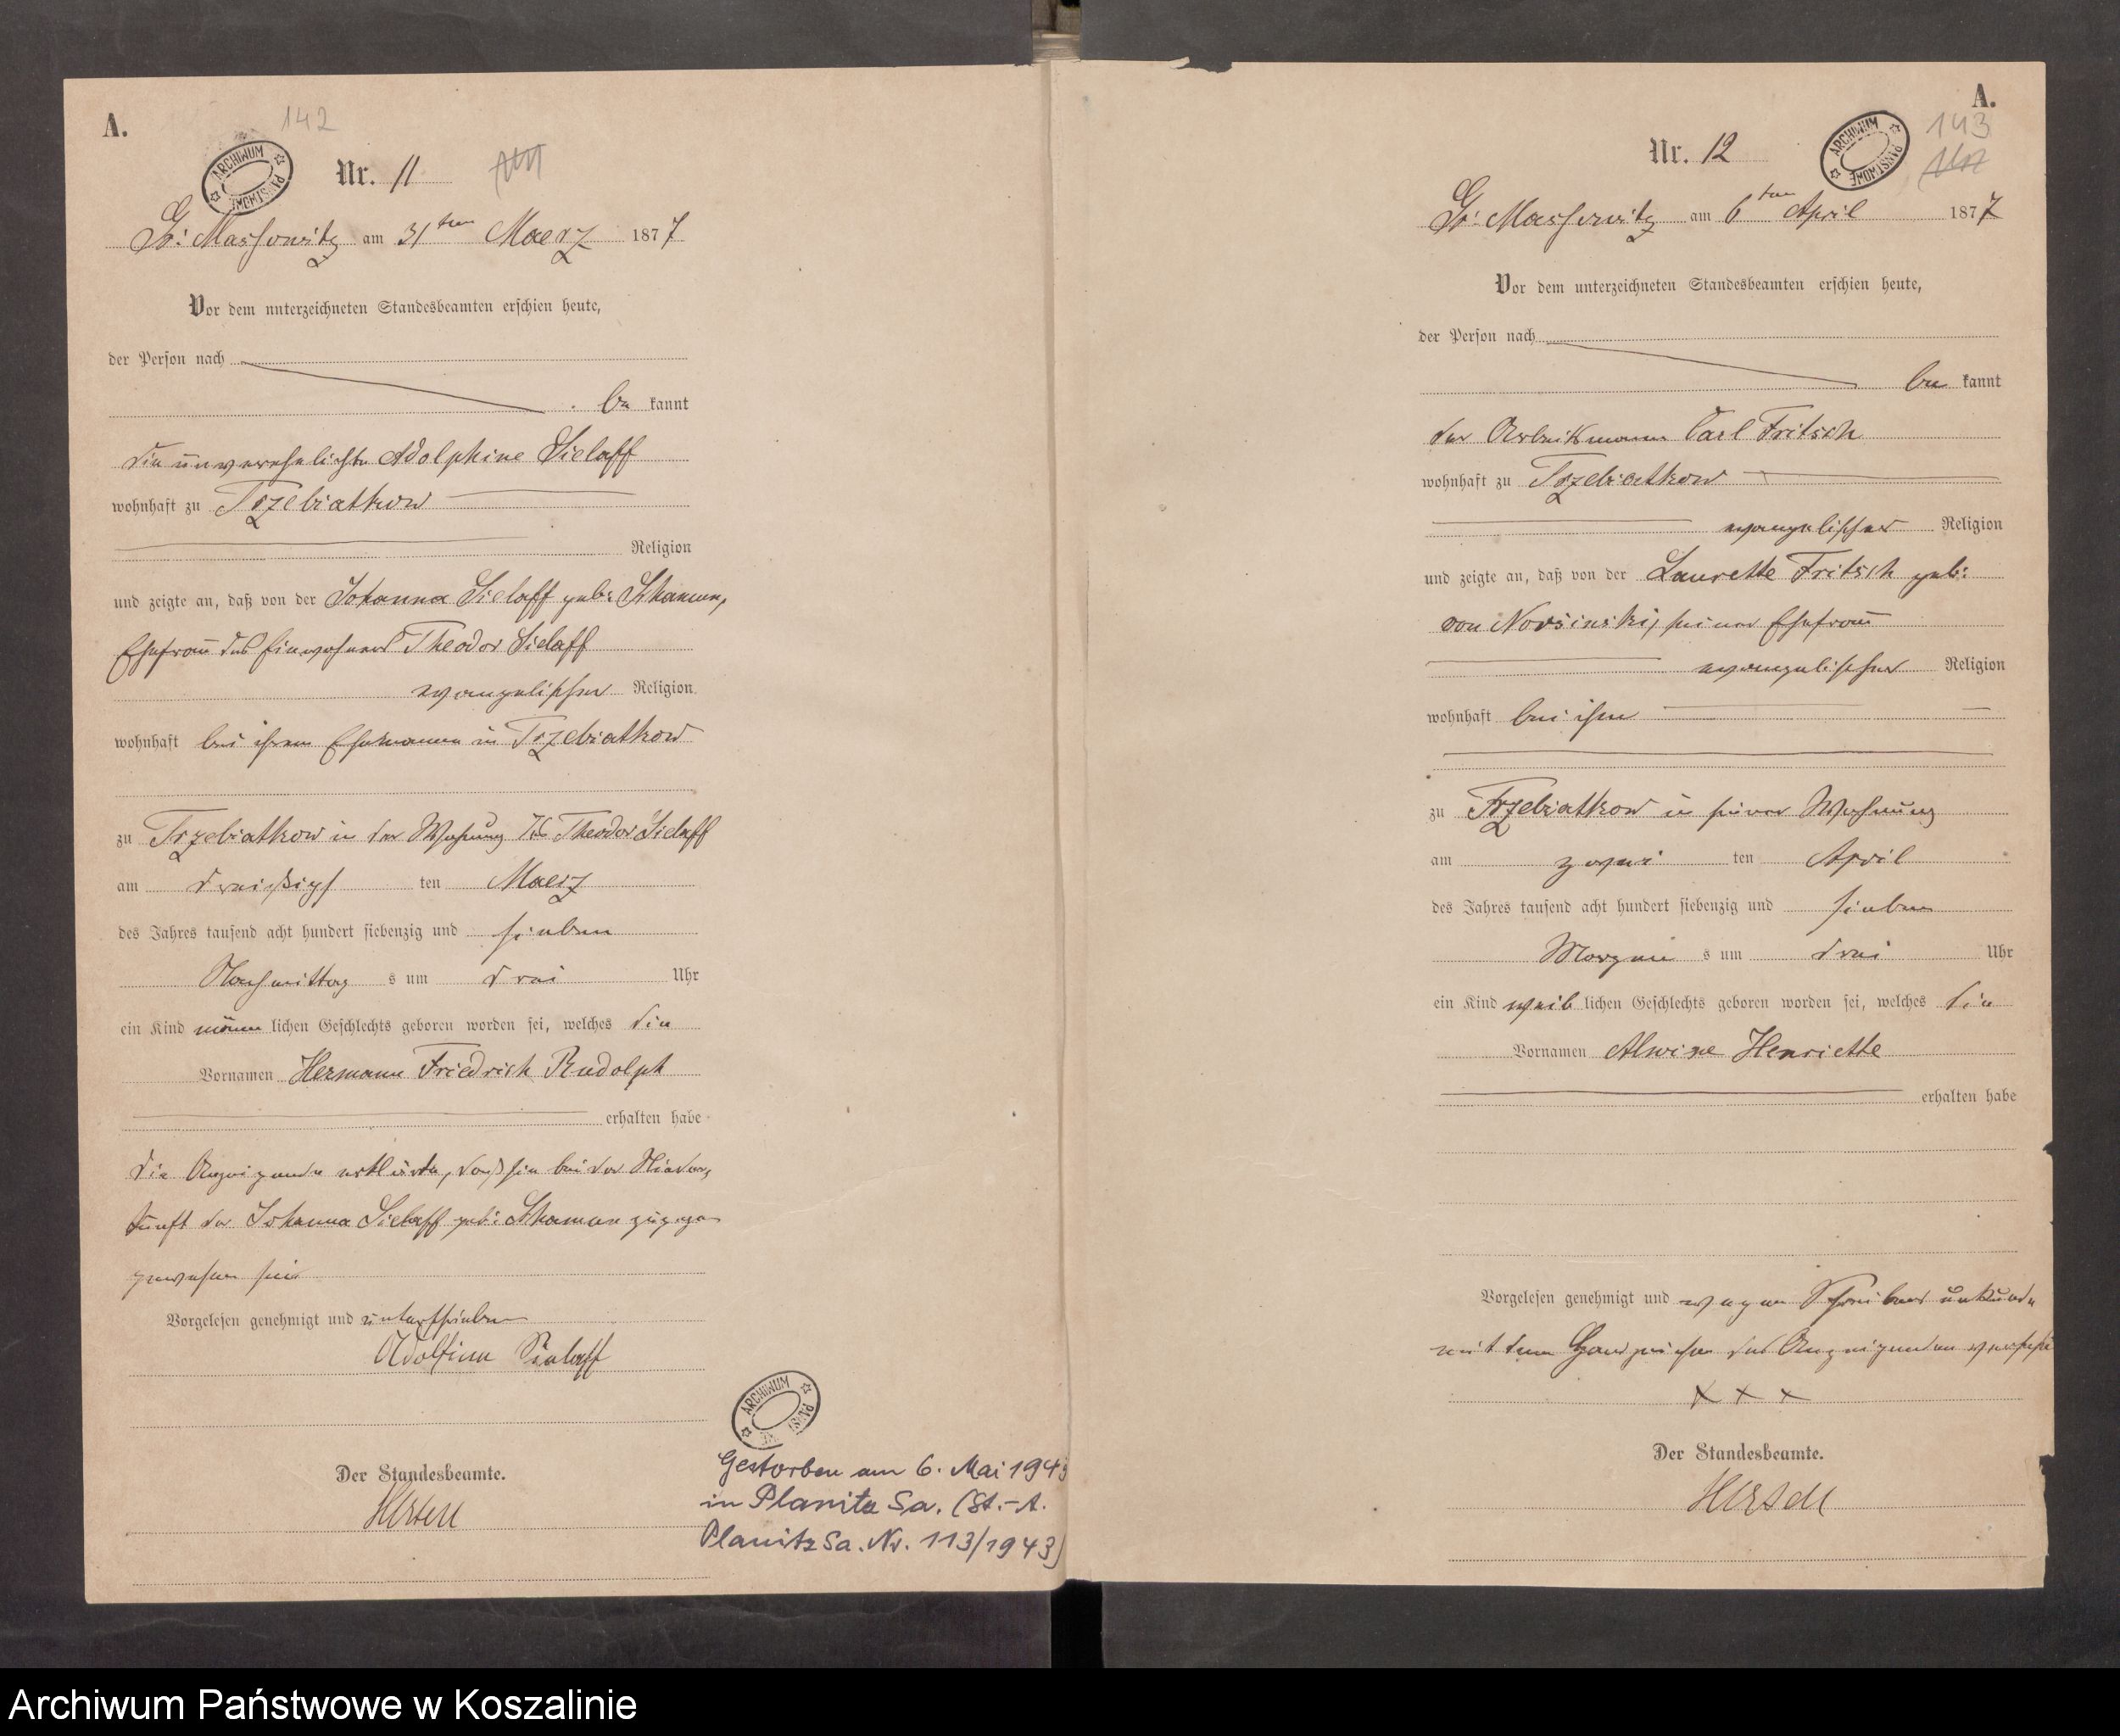 A.
142
ARCHIWUM PAŃSTWOWE
Nr. 11
Gr: Massowitz am 31ten Maerz 1877
Vor dem unterzeichneten Standesbeamten erschien heute,
der Person nach
be kannt
die unverehelichte Adolphine Sielaff
wohnhaft zu Trzebiatkow
Religion
und zeigte an, daß von der Johanna Sielaff geb:
Ehefrau des Einwohners Theodor Sielaff
evangelischer Religion
wohnhaft bei ihrem Ehemanne in Trzebiatkow
zu Trzebiatkow in der Wohnung des Theodor Sielaff
am dreißigs ten Maerz
des Jahres tausend acht hundert siebenzig und sieben
Nachmittag s um drei Uhr
ein Kind männ lichen Geschlechts geboren worden sei, welches die
Vornamen Hermann Friedrich Rudolph
erhalten habe
Die Anzeigende erklärte, daß sie bei der Nieder-
kunft der Johanna Sielaff geb: zugegen
gewesen sei
Vorgelesen genehmigt und unterschrieben
Adolfine Sielaff
Der Standesbeamte.
ARCHIWUM PAŃSTWOWE
Gestorben am 6. Mai 1943
in Planitz Sa. (St.-A.
Planitz Sa. Nr. 113/1943)
A.
143
ARCHIWUM PAŃSTWOWE
Nr. 12
Gr: Massowitz am 6ten April 1877
Vor dem unterzeichneten Standesbeamten erschien heute,
der Person nach
be kannt
der Arbeitsmann Carl Fritsch
wohnhaft zu Trzebiatkow
evangelischer Religion
und zeigte an, daß von der Laurette Fritsch geb:
von seiner Ehefrau
evangelischer Religion
wohnhaft bei ihm
zu Trzebiatkow in seiner Wohnung
am zwei ten April
des Jahres tausend acht hundert siebenzig und sieben
Morgen s um drei Uhr
ein Kind weib lichen Geschlechts geboren worden sei, welches die
Vornamen Alwine Henriette
erhalten habe
Vorgelesen genehmigt und wegen Schreibens unkunde
mit dem Handzeichen des Anzeigenden versehen
x x x
Der Standesbeamte.
Archiwum Państwowe w Koszalinie